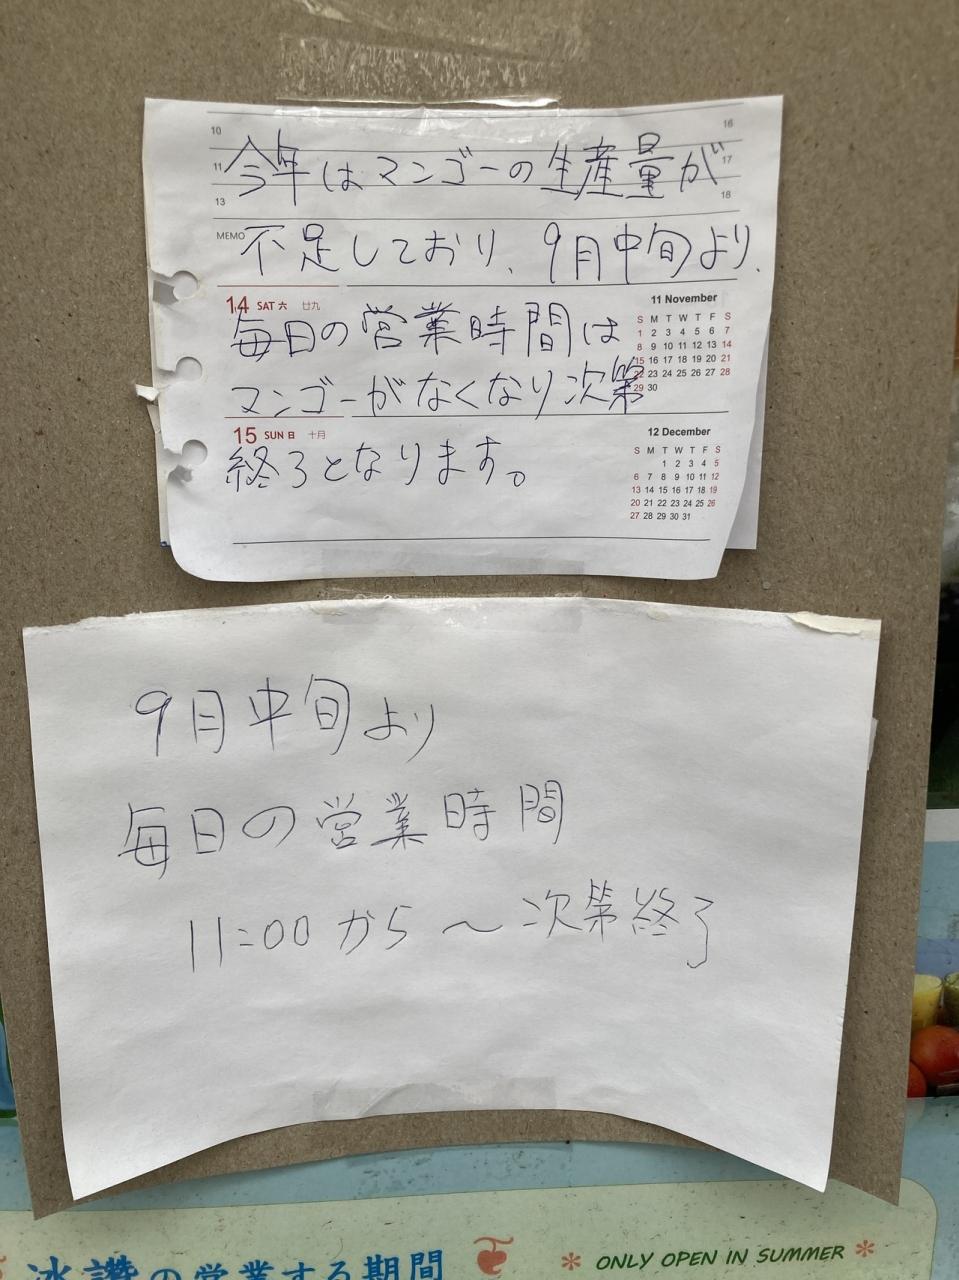 10
16
11
17
今年はマンゴーの生産量が
13
18
MEMO
不足しており、9月中旬より、
14 SAT 六 廿九
11 November
毎日の営業時間は
S M T W T F S
1 2 3 4 5 6 7
8 9 10 11 12 13 14
15 16 17 18 19 20 21
22 23 24 25 26 27 28
29 30
マンゴーがなくなり次第
15 SUN 日 十月
12 December
終了となります。
S M T W T F S
1 2 3 4 5
6 7 8 9 10 11 12
13 14 15 16 17 18 19
20 21 22 23 24 25 26
27 28 29 30 31
9月中旬より
毎日の営業時間
11:00から〜次第終了
冰讃の営業する期間
ONLY OPEN IN SUMMER